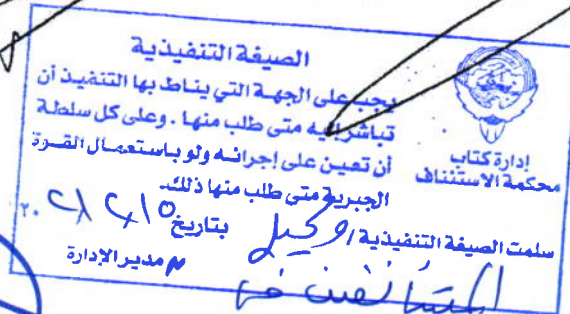 الصيغة التنفيذية
يجب على الجهة التي يناط بها التنفيذ أن
تباشر إليه متى طلب منها . وعلى كل سلطة
أن تعين على إجرائه ولو باستعمال القوة
الجبرية متى طلب منها ذلك.
إدارة كتاب
محكمة الاستئناف
سلمت الصيغة التنفيذية / وكيل بتاريخ
مدير الإدارة